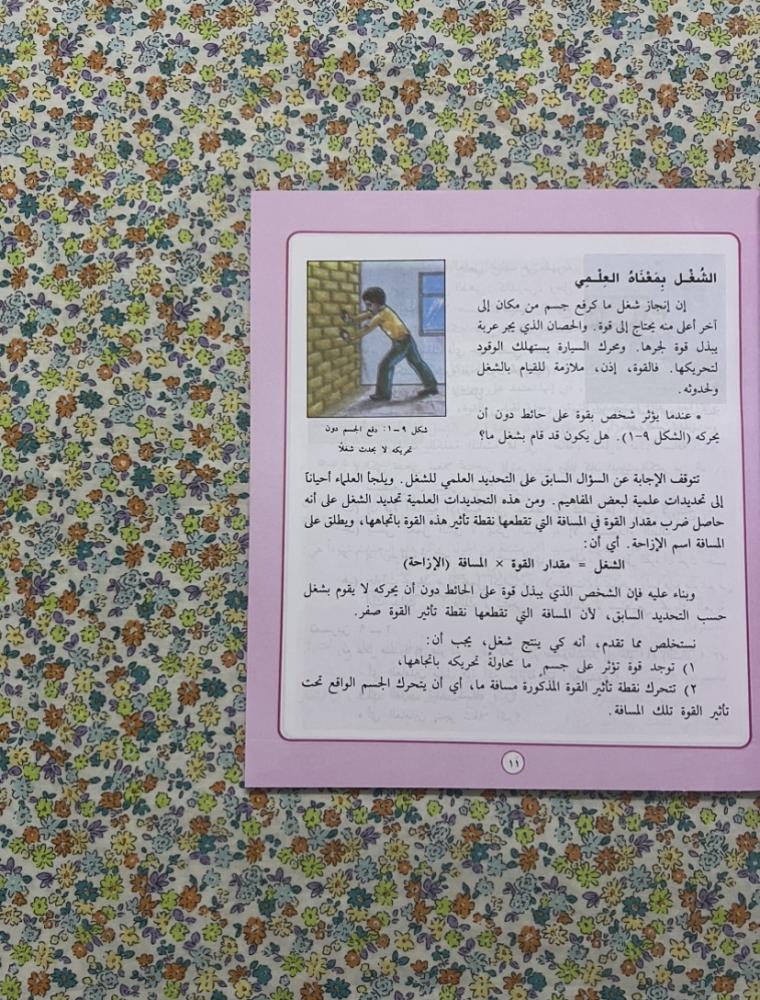 الشُغْـل بِمَعْنَاهُ العِلْـمِي
إن إنجاز شغل ما كرفع جسم من مكان إلى
آخر أعلى منه يحتاج إلى قوة. والحصان الذي يجر عربة
يبذل قوة لجرها. ومحرك السيارة يستهلك الوقود
لتحريكها. فالقوة، إذن، ملازمة للقيام بالشغل
ولحدوثه.
• عندما يؤثر شخص بقوة على حائط دون أن
يحركه (الشكل ٩-١). هل يكون قد قام بشغل ما؟
شكل ٩-١: دفع الجسم دون
تحريكه لا يحدث شغلاً
تتوقف الإجابة عن السؤال السابق على التحديد العلمي للشغل. ويلجأ العلماء أحياناً
إلى تحديدات علمية لبعض المفاهيم. ومن هذه التحديدات العلمية تحديد الشغل على أنه
حاصل ضرب مقدار القوة في المسافة التي تقطعها نقطة تأثير هذه القوة باتجاهها، ويطلق على
المسافة اسم الإزاحة. أي أن:
الشغل = مقدار القوة × المسافة (الإزاحة)
وبناء عليه فإن الشخص الذي يبذل قوة على الحائط دون أن يحركه لا يقوم بشغل
حسب التحديد السابق، لأن المسافة التي تقطعها نقطة تأثير القوة صفر.
نستخلص مما تقدم، أنه كي ينتج شغل، يجب أن:
١) توجد قوة تؤثر على جسم ما محاولةً تحريكه باتجاهها،
٢) تتحرك نقطة تأثير القوة المذكورة مسافة ما، أي أن يتحرك الجسم الواقع تحت
تأثير القوة تلك المسافة.
١١